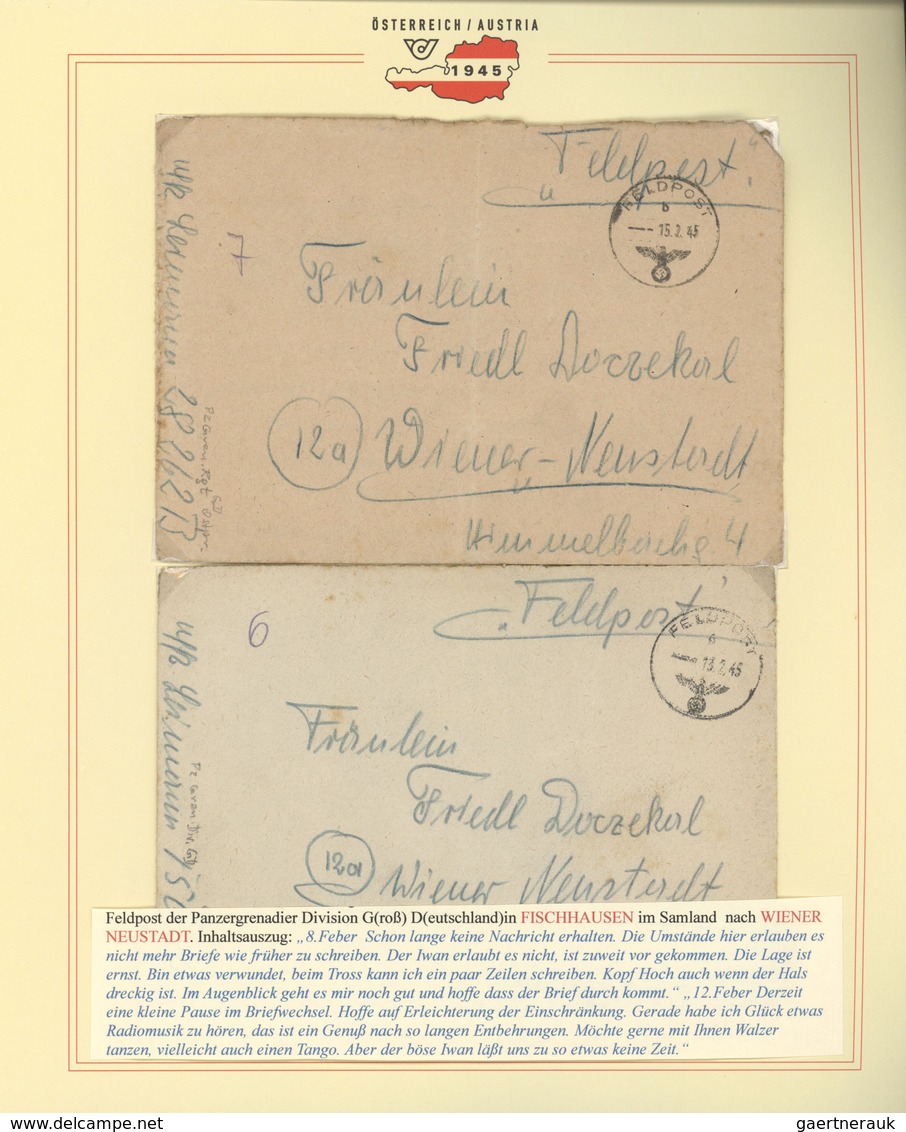 ÖSTERREICH / AUSTRIA
1945
„Feldpost"
FELDPOST
b
15.2.45
7
Fräulein
Friedl Doczekal
12a Wiener-Neustadt
28262 B
Pz Gren. Rgt GD
6
„Feldpost"
FELDPOST
13.2.45
Fräulein
Friedl Doczekal
12a
Wiener Neustadt
Pz Gren. Div. GD
Feldpost der Panzergrenadier Division G(roß) D(eutschland)in FISCHHAUSEN im Samland nach WIENER
NEUSTADT. Inhaltsauszug: „8.Feber Schon lange keine Nachricht erhalten. Die Umstände hier erlauben es
nicht mehr Briefe wie früher zu schreiben. Der Iwan erlaubt es nicht, ist zuweit vor gekommen. Die Lage ist
ernst. Bin etwas verwundet, beim Tross kann ich ein paar Zeilen schreiben. Kopf Hoch auch wenn der Hals
dreckig ist. Im Augenblick geht es mir noch gut und hoffe dass der Brief durch kommt.“ „12.Feber Derzeit
eine kleine Pause im Briefwechsel. Hoffe auf Erleichterung der Einschränkung. Gerade habe ich Glück etwas
Radiomusik zu hören, das ist ein Genuß nach so langen Entbehrungen. Möchte gerne mit Ihnen Walzer
tanzen, vielleicht auch einen Tango. Aber der böse Iwan läßt uns zu so etwas keine Zeit.“
www.delcampe.net
gaertnerauk